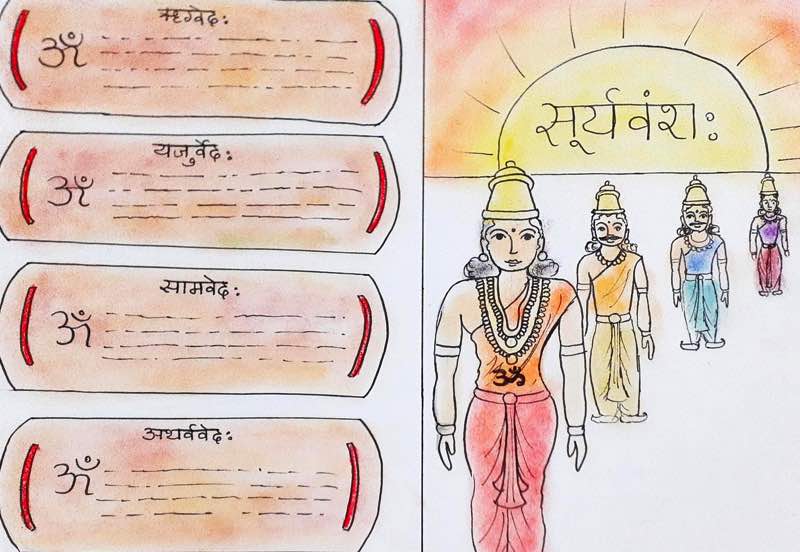 ऋग्वेदः
ॐ
यजुर्वेदः
ॐ
सामवेदः
ॐ
अथर्ववेदः
ॐ
सूर्यवंशः
ॐ